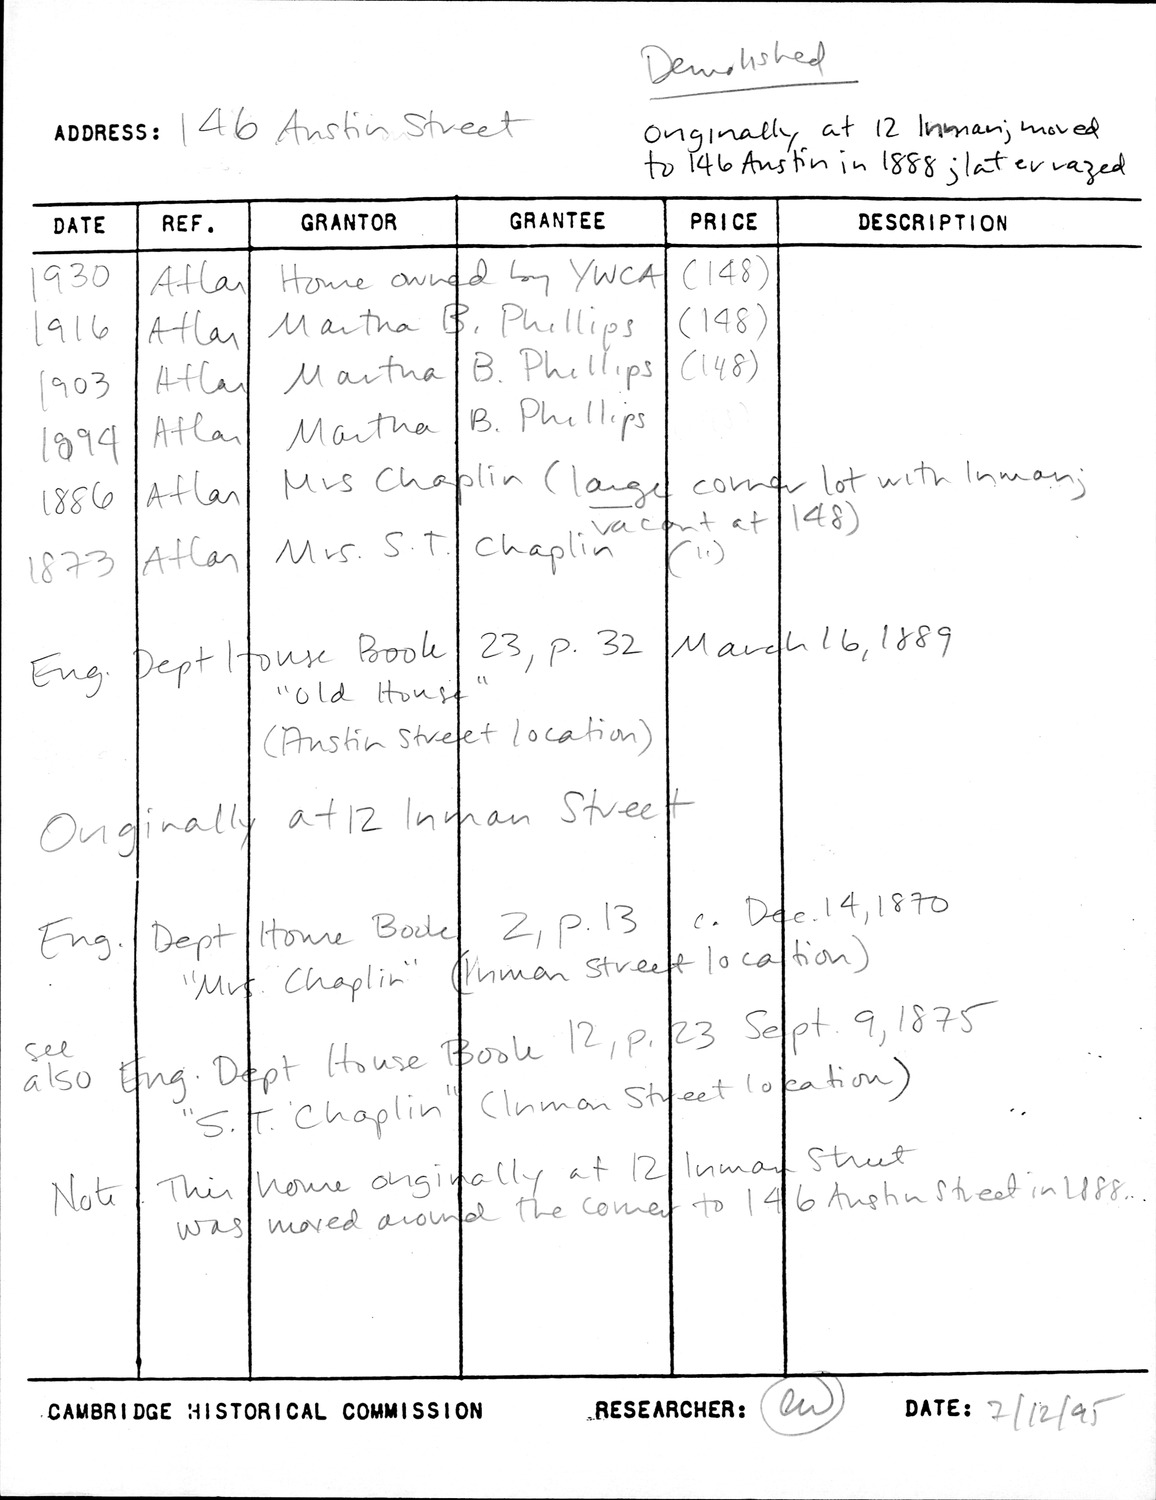 Demolished
ADDRESS: 146 Austin Street
originally at 12 Inman; moved
to 146 Austin in 1888; later razed
DATE REF. GRANTOR GRANTEE PRICE DESCRIPTION
1930 Atlas Home owned by YWCA (148)
1916 Atlas Martha B. Phillips (148)
1903 Atlas Martha B. Phillips (148)
1894 Atlas Martha B. Phillips
1886 Atlas Mrs Chaplin (large corner lot with Inman;
vacant at 148)
1873 Atlas Mrs. S.T. Chaplin (")
Eng. Dept House Book 23, p. 32 March 16, 1889
"Old House"
(Austin Street location)
Originally at 12 Inman Street
Eng. Dept House Book 2, p. 13 c. Dec. 14, 1870
"Mrs. Chaplin" (Inman Street location)
see
also Eng. Dept House Book 12, p. 23 Sept. 9, 1875
"S.T. Chaplin" (Inman Street location)
Note: This house originally at 12 Inman Street
was moved around the corner to 146 Austin Street in 1888...
CAMBRIDGE HISTORICAL COMMISSION RESEARCHER: DATE: 7/12/95